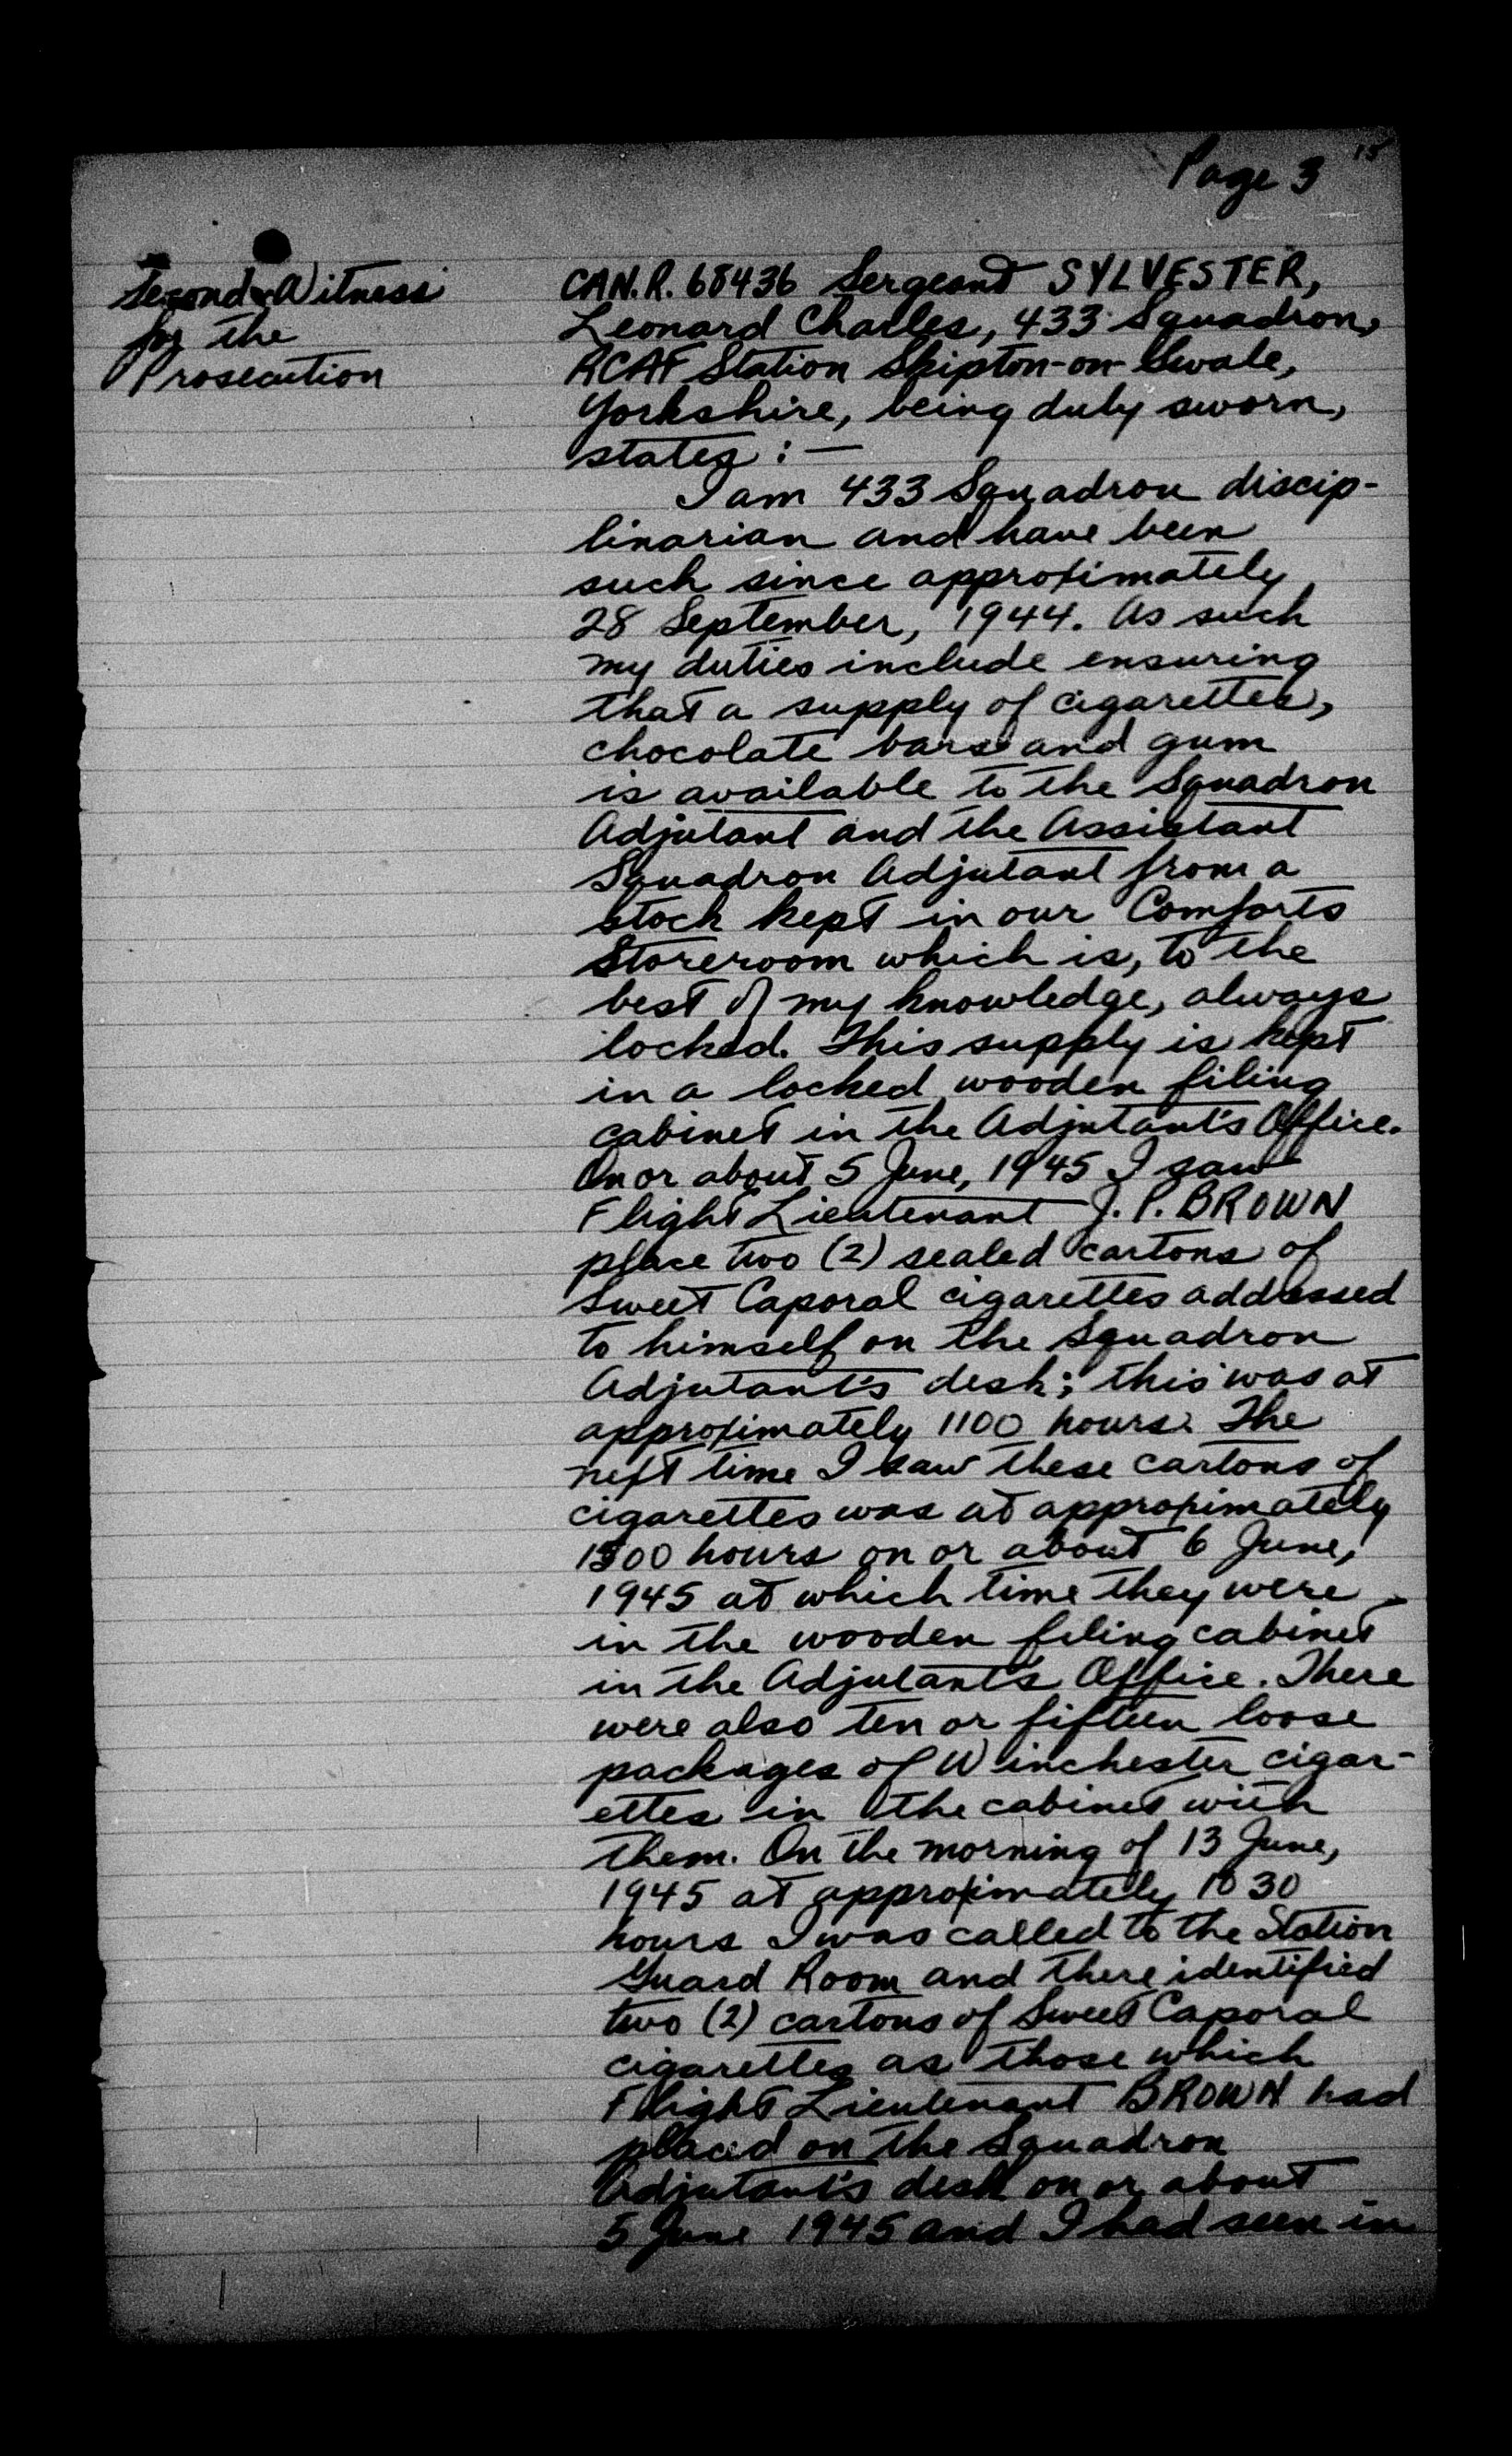 Page 3
15
Second Witness
for the
Prosecution
CAN.R. 68436 Sergeant SYLVESTER,
Leonard Charles, 433 Squadron,
RCAF Station Skipton-on-Swale,
Yorkshire, being duly sworn,
states :—
I am 433 Squadron discip-
linarian and have been
such since approximately
28 September, 1944. As such
my duties include ensuring
that a supply of cigarettes,
chocolate bars and gum
is available to the Squadron
Adjutant and the Assistant
Squadron Adjutant from a
stock kept in our Comforts
Storeroom which is, to the
best of my knowledge, always
locked. This supply is kept
in a locked wooden filing
cabinet in the Adjutant's Office.
On or about 5 June, 1945 I saw
Flight Lieutenant J. P. BROWN
place two (2) sealed cartons of
Sweet Caporal cigarettes addressed
to himself on the Squadron
Adjutant's desk; this was at
approximately 1100 hours. The
next time I saw these cartons of
cigarettes was at approximately
1500 hours on or about 6 June,
1945 at which time they were
in the wooden filing cabinet
in the Adjutant's Office. There
were also ten or fifteen loose
packages of Winchester cigar-
ettes in the cabinet with
them. On the morning of 13 June,
1945 at approximately 1030
hours I was called to the Station
Guard Room and there identified
two (2) cartons of Sweet Caporal
cigarettes as those which
Flight Lieutenant BROWN had
placed on the Squadron
Adjutant's desk on or about
5 June 1945 and I had seen in